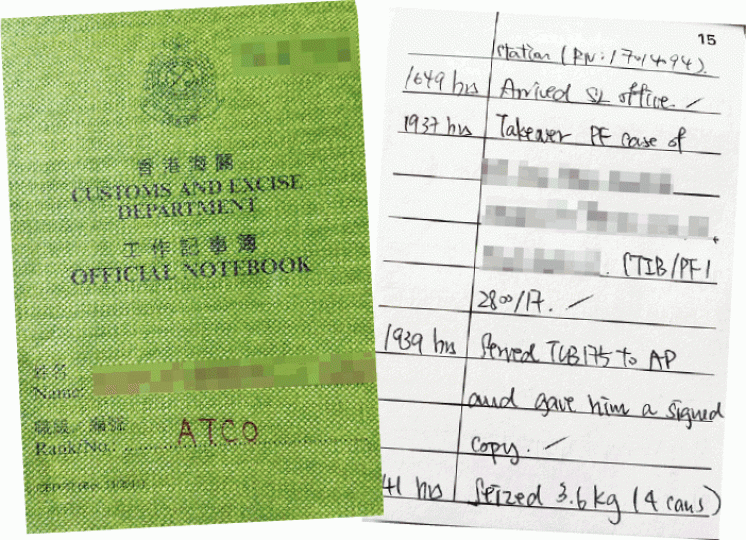 香港海關
CUSTOMS AND EXCISE
DEPARTMENT
工作記事簿
OFFICIAL NOTEBOOK
姓名
Name:
職級/編號
Rank/No.: ATCO
15
Station (RN: 1701494).
1649 hrs Arrived SL office.
1937 hrs Takeover PF case of
. CTIB/PF/
2800/17.
1939 hrs Served TCB175 to AP
and gave him a signed
copy.
41 hrs Seized 3.6 kg (4 cans)